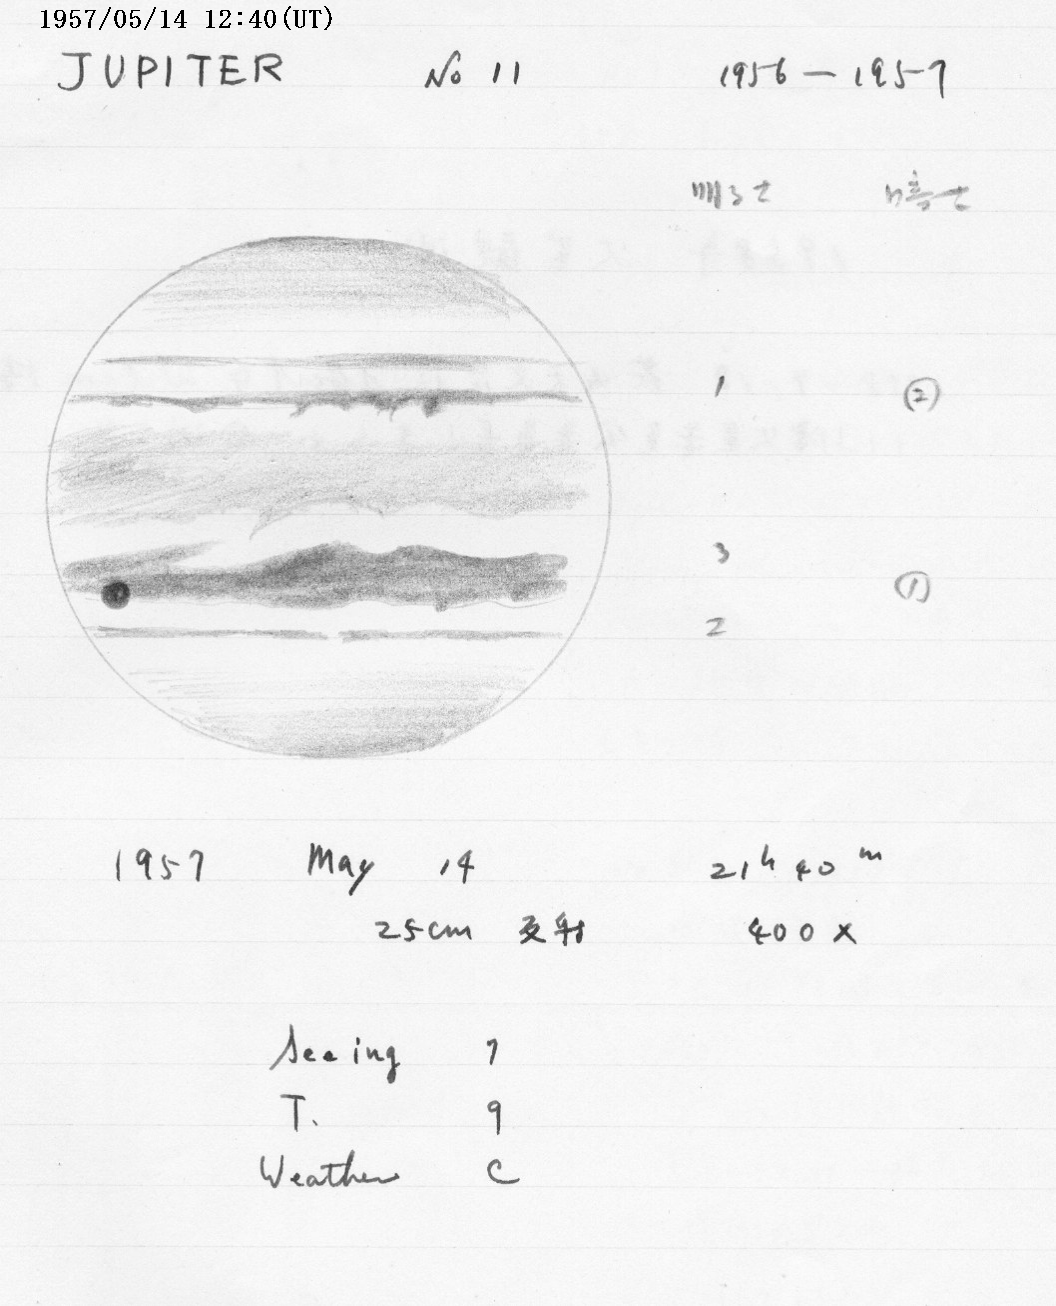 1957/05/14 12:40(UT)
JUPITER No 11 1956 — 1957
1 (2)
3
(1)
2
1957 May 14 21h 40m
25cm 反射 400 X
Seeing 7
T. 9
Weather C